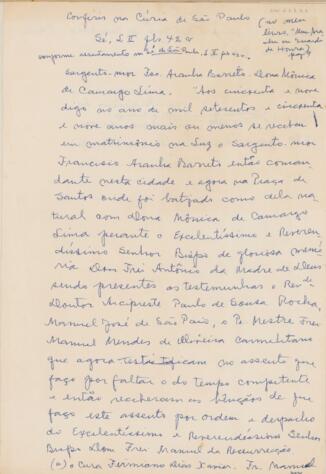 Conferir na Cúria de São Paulo
(no meu
livro,
Sé, L II fls. 42 v
conforme assentamento na Sé de São Paulo, L II fls 42v.
Sargento-mor Fco. Aranha Barreto - Dona Mônica
de Camargo Lima. "Aos cincoenta e nove
digo no ano de mil setecentos e cincoenta
e nove anos mais ou menos se receberam
em matrimônio na Luz o Sargento-mor
Francisco Aranha Barreto então coman-
dante nesta cidade e agora na Praça de
Santos onde foi batizado como dela na-
tural com Dona Mônica de Camargo
Lima perante o Excelentíssimo e Reveren-
díssimo Senhor Bispo de gloriosa memó-
ria Dom Frei Antônio da Madre de Deus
sendo presentes as testemunhas o Revdo
Doutor Arcipreste Paulo de Sousa Rocha,
Manuel José de São Paio, o Pe. Mestre Frei
Manuel Mendes de Oliveira Carmelitano
que agora testificam no assento que
faço por faltar o do tempo competente
e então receberam as bênçãos de que
faço este assento por ordem e despacho
do Excelentíssimo e Reverendíssimo Senhor
Bispo Dom Frei Manuel da Ressurreição
(a) o Cura Fermiano Dias Xavier. Fr. Manuel